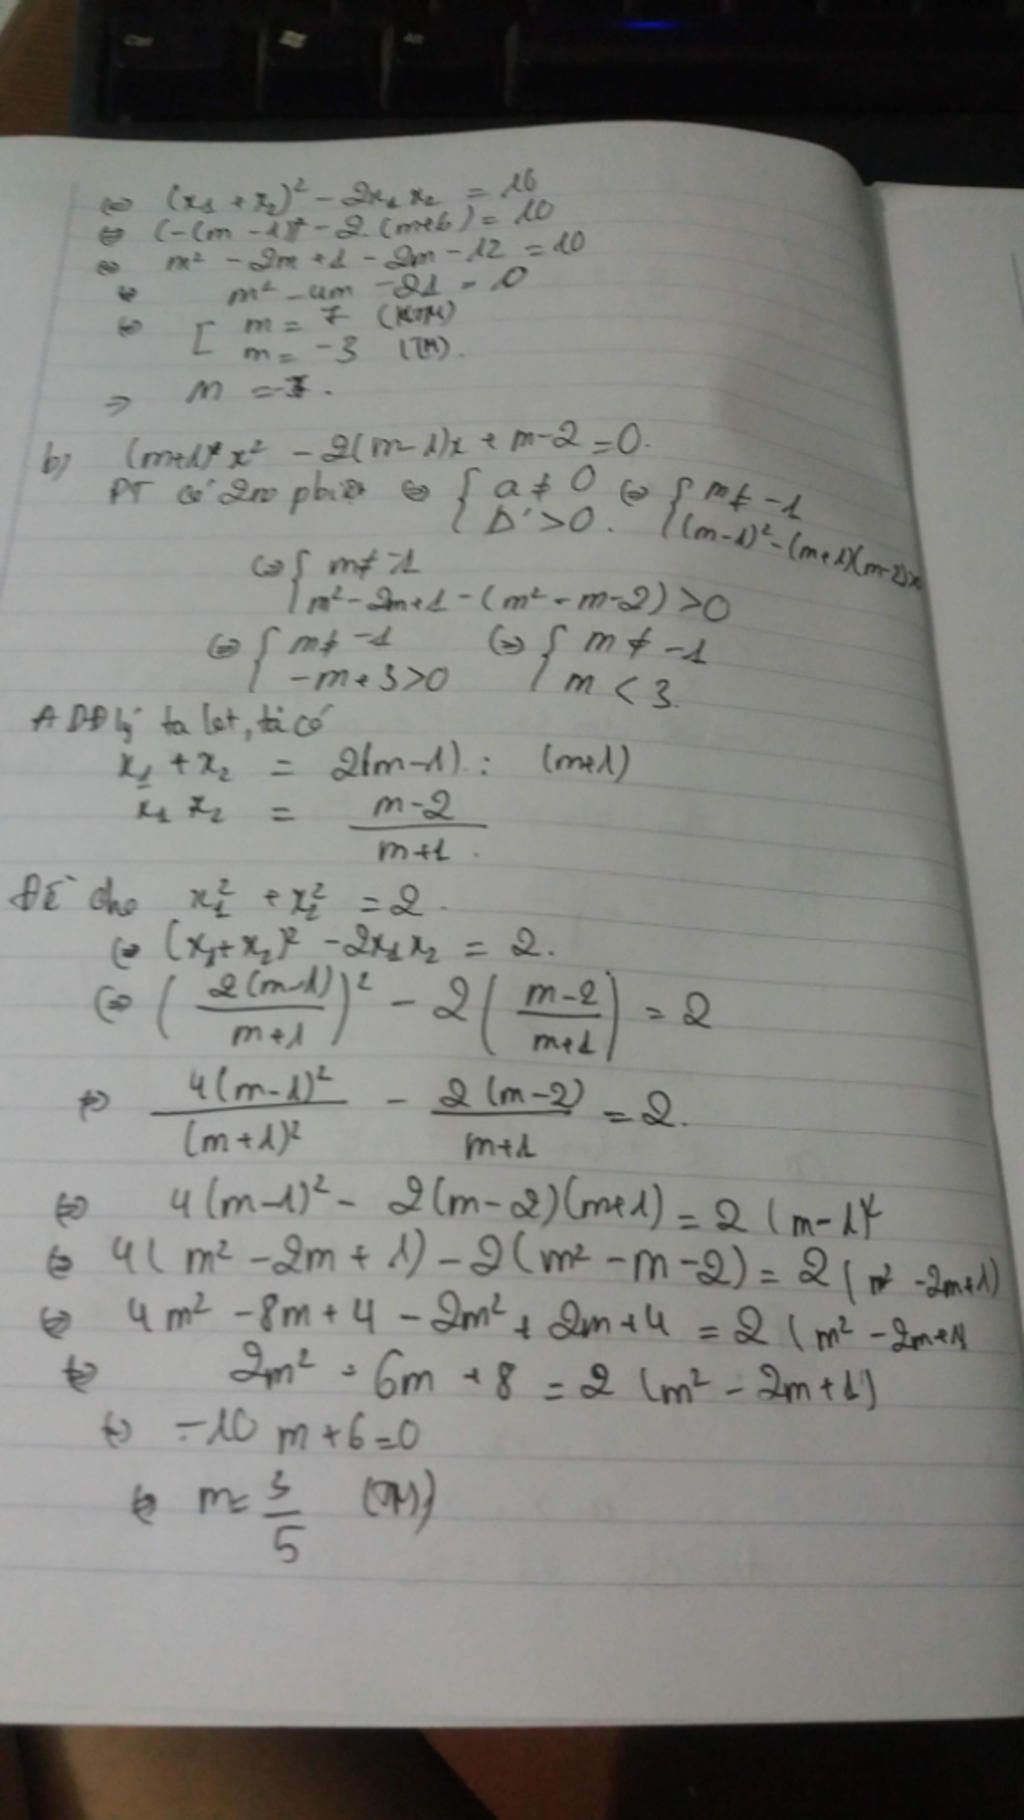 Ctrl
Alt
⇔ (x₁ + x₂)² - 2x₁x₂ = 10
⇔ (-(m - 1))² - 2(m+6) = 10
⇔ m² - 2m + 1 - 2m - 12 = 10
⇔ m² - 4m - 21 = 0
⇔ [ m = 7 (KTM)
m = -3 (TM).
⇒ m = -3.
b) (m+1)x² - 2(m-1)x + m-2 = 0.
PT có 2no pbiệt ⇔ { a ≠ 0 ⇔ { m ≠ -1
Δ' > 0. (m-1)² - (m+1)(m-2)>0
⇔ { m ≠ -1
m² - 2m + 1 - (m² - m - 2) > 0
⇔ { m ≠ -1 ⇔ { m ≠ -1
-m + 3 > 0 m < 3.
ADĐlý ta let, ta có
x₁ + x₂ = 2(m-1) : (m+1)
x₁ x₂ = (m-2)/(m+1).
Để cho x₁² + x₂² = 2.
⇔ (x₁+x₂)² - 2x₁x₂ = 2.
⇔ (2(m-1)/(m+1))² - 2((m-2)/(m+1)) = 2
⇔ 4(m-1)²/(m+1)² - 2(m-2)/(m+1) = 2.
⇔ 4(m-1)² - 2(m-2)(m+1) = 2(m-1)²
⇔ 4(m² - 2m + 1) - 2(m² - m - 2) = 2(m² - 2m+1)
⇔ 4m² - 8m + 4 - 2m² + 2m + 4 = 2(m² - 2m+1)
⇔ 2m² - 6m + 8 = 2(m² - 2m + 1)
⇔ -10m + 6 = 0
⇔ m = 3/5 (TM)